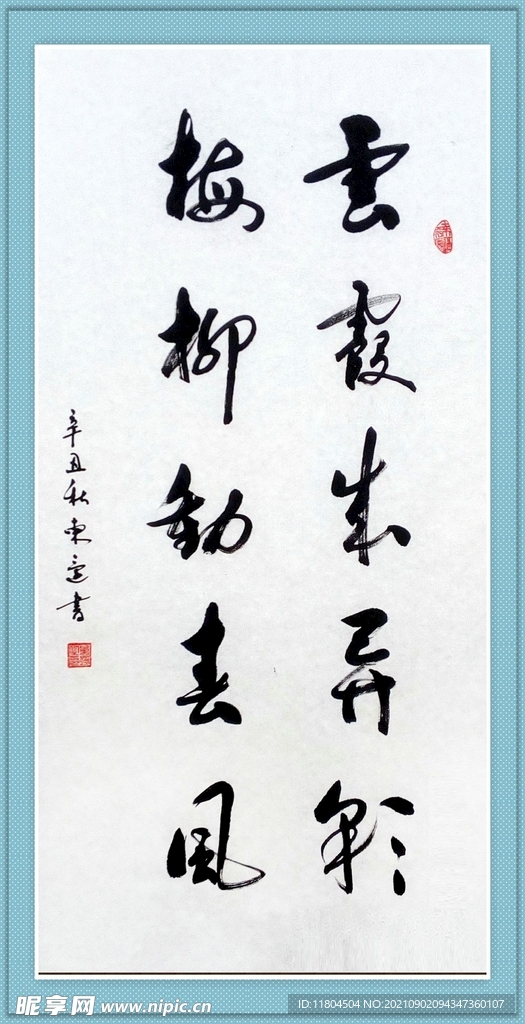 雲霞成异彩
梅柳動春風
辛丑秋東書
昵享网 www.nipic.cn
ID:11804504 NO:20210902094347360107